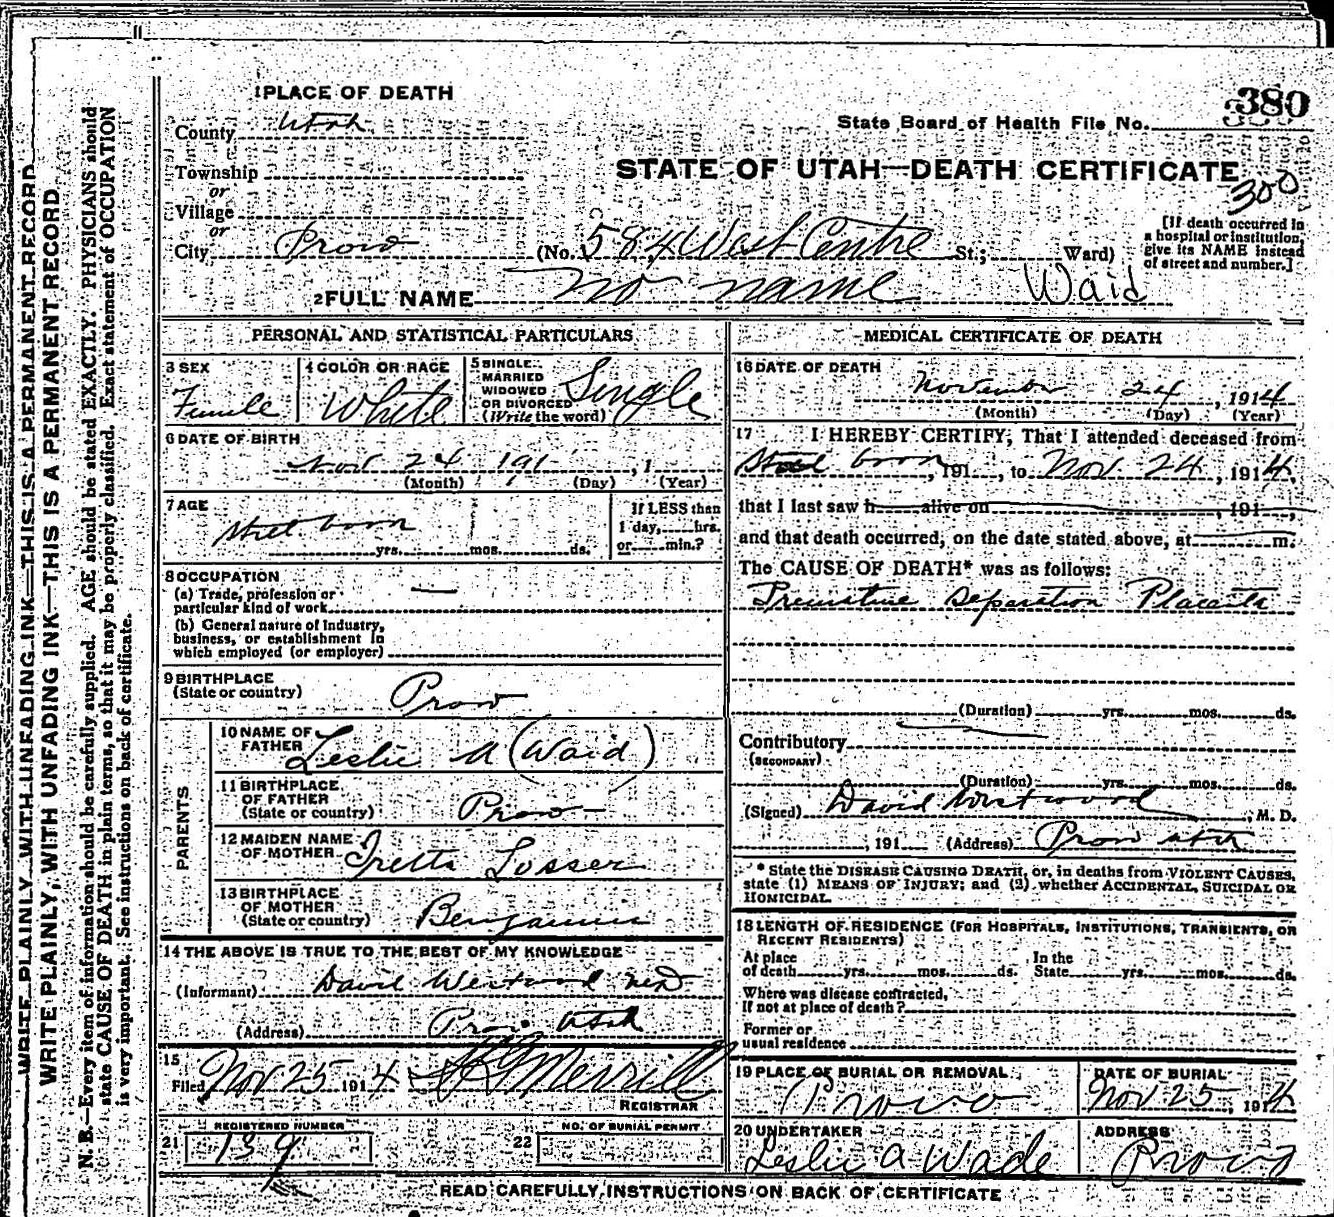 380
1 PLACE OF DEATH
County Utah
State Board of Health File No.
Township
or
STATE OF UTAH—DEATH CERTIFICATE
300
Village
or
City Provo (No. 584 West Centre St.; Ward)
[If death occurred in
a hospital or institution,
give its NAME instead
of street and number.]
2 FULL NAME no name Waid
PERSONAL AND STATISTICAL PARTICULARS
3 SEX
Female
4 COLOR OR RACE
White
5 SINGLE,
MARRIED
WIDOWED
OR DIVORCED
(Write the word)
Single
6 DATE OF BIRTH
Nov 24 191 , 1
(Month) (Day) (Year)
7 AGE
Still born
yrs. mos. ds.
If LESS than
1 day, hrs.
or min.?
8 OCCUPATION
(a) Trade, profession or
particular kind of work
(b) General nature of Industry,
business, or establishment in
which employed (or employer)
9 BIRTHPLACE
(State or country)
Provo
PARENTS
10 NAME OF
FATHER
Leslie A (Waid)
11 BIRTHPLACE
OF FATHER
(State or country)
Provo
12 MAIDEN NAME
OF MOTHER
Iretta Losser
13 BIRTHPLACE
OF MOTHER
(State or country)
Benjamin
14 THE ABOVE IS TRUE TO THE BEST OF MY KNOWLEDGE
(Informant) David Westwood MD
(Address) Provo Utah
15
Filed Nov 25 1914 Merrill
REGISTRAR
REGISTERED NUMBER
21 139
NO. OF BURIAL PERMIT
22
MEDICAL CERTIFICATE OF DEATH
16 DATE OF DEATH
November 24, 1914
(Month) (Day) (Year)
17 I HEREBY CERTIFY, That I attended deceased from
born, 191 , to Nov. 24, 1914,
that I last saw h alive on , 191 ,
and that death occurred, on the date stated above, at m.
The CAUSE OF DEATH* was as follows:
Separation Placenta
(Duration) yrs. mos. ds.
Contributory
(SECONDARY)
(Duration) yrs. mos. ds.
(Signed) David Westwood, M. D.
, 191 (Address) Provo Utah
* State the DISEASE CAUSING DEATH, or, in deaths from VIOLENT CAUSES,
state (1) MEANS OF INJURY; and (2) whether ACCIDENTAL, SUICIDAL OR
HOMICIDAL.
18 LENGTH OF RESIDENCE (FOR HOSPITALS, INSTITUTIONS, TRANSIENTS, OR
RECENT RESIDENTS)
At place
of death yrs. mos. ds.
In the
State yrs. mos. ds.
Where was disease contracted,
If not at place of death?
Former or
usual residence
19 PLACE OF BURIAL OR REMOVAL
Provo
DATE OF BURIAL
Nov. 25, 1914
20 UNDERTAKER
Leslie A Wade
ADDRESS
Provo
READ CAREFULLY INSTRUCTIONS ON BACK OF CERTIFICATE
WRITE PLAINLY, WITH UNFADING INK—THIS IS A PERMANENT RECORD
WRITE PLAINLY, WITH UNFADING INK—THIS IS A PERMANENT RECORD
N. B.—Every item of information should be carefully supplied. AGE should be stated EXACTLY. PHYSICIANS should
state CAUSE OF DEATH in plain terms, so that it may be properly classified. Exact statement of OCCUPATION
is very important. See instructions on back of certificate.